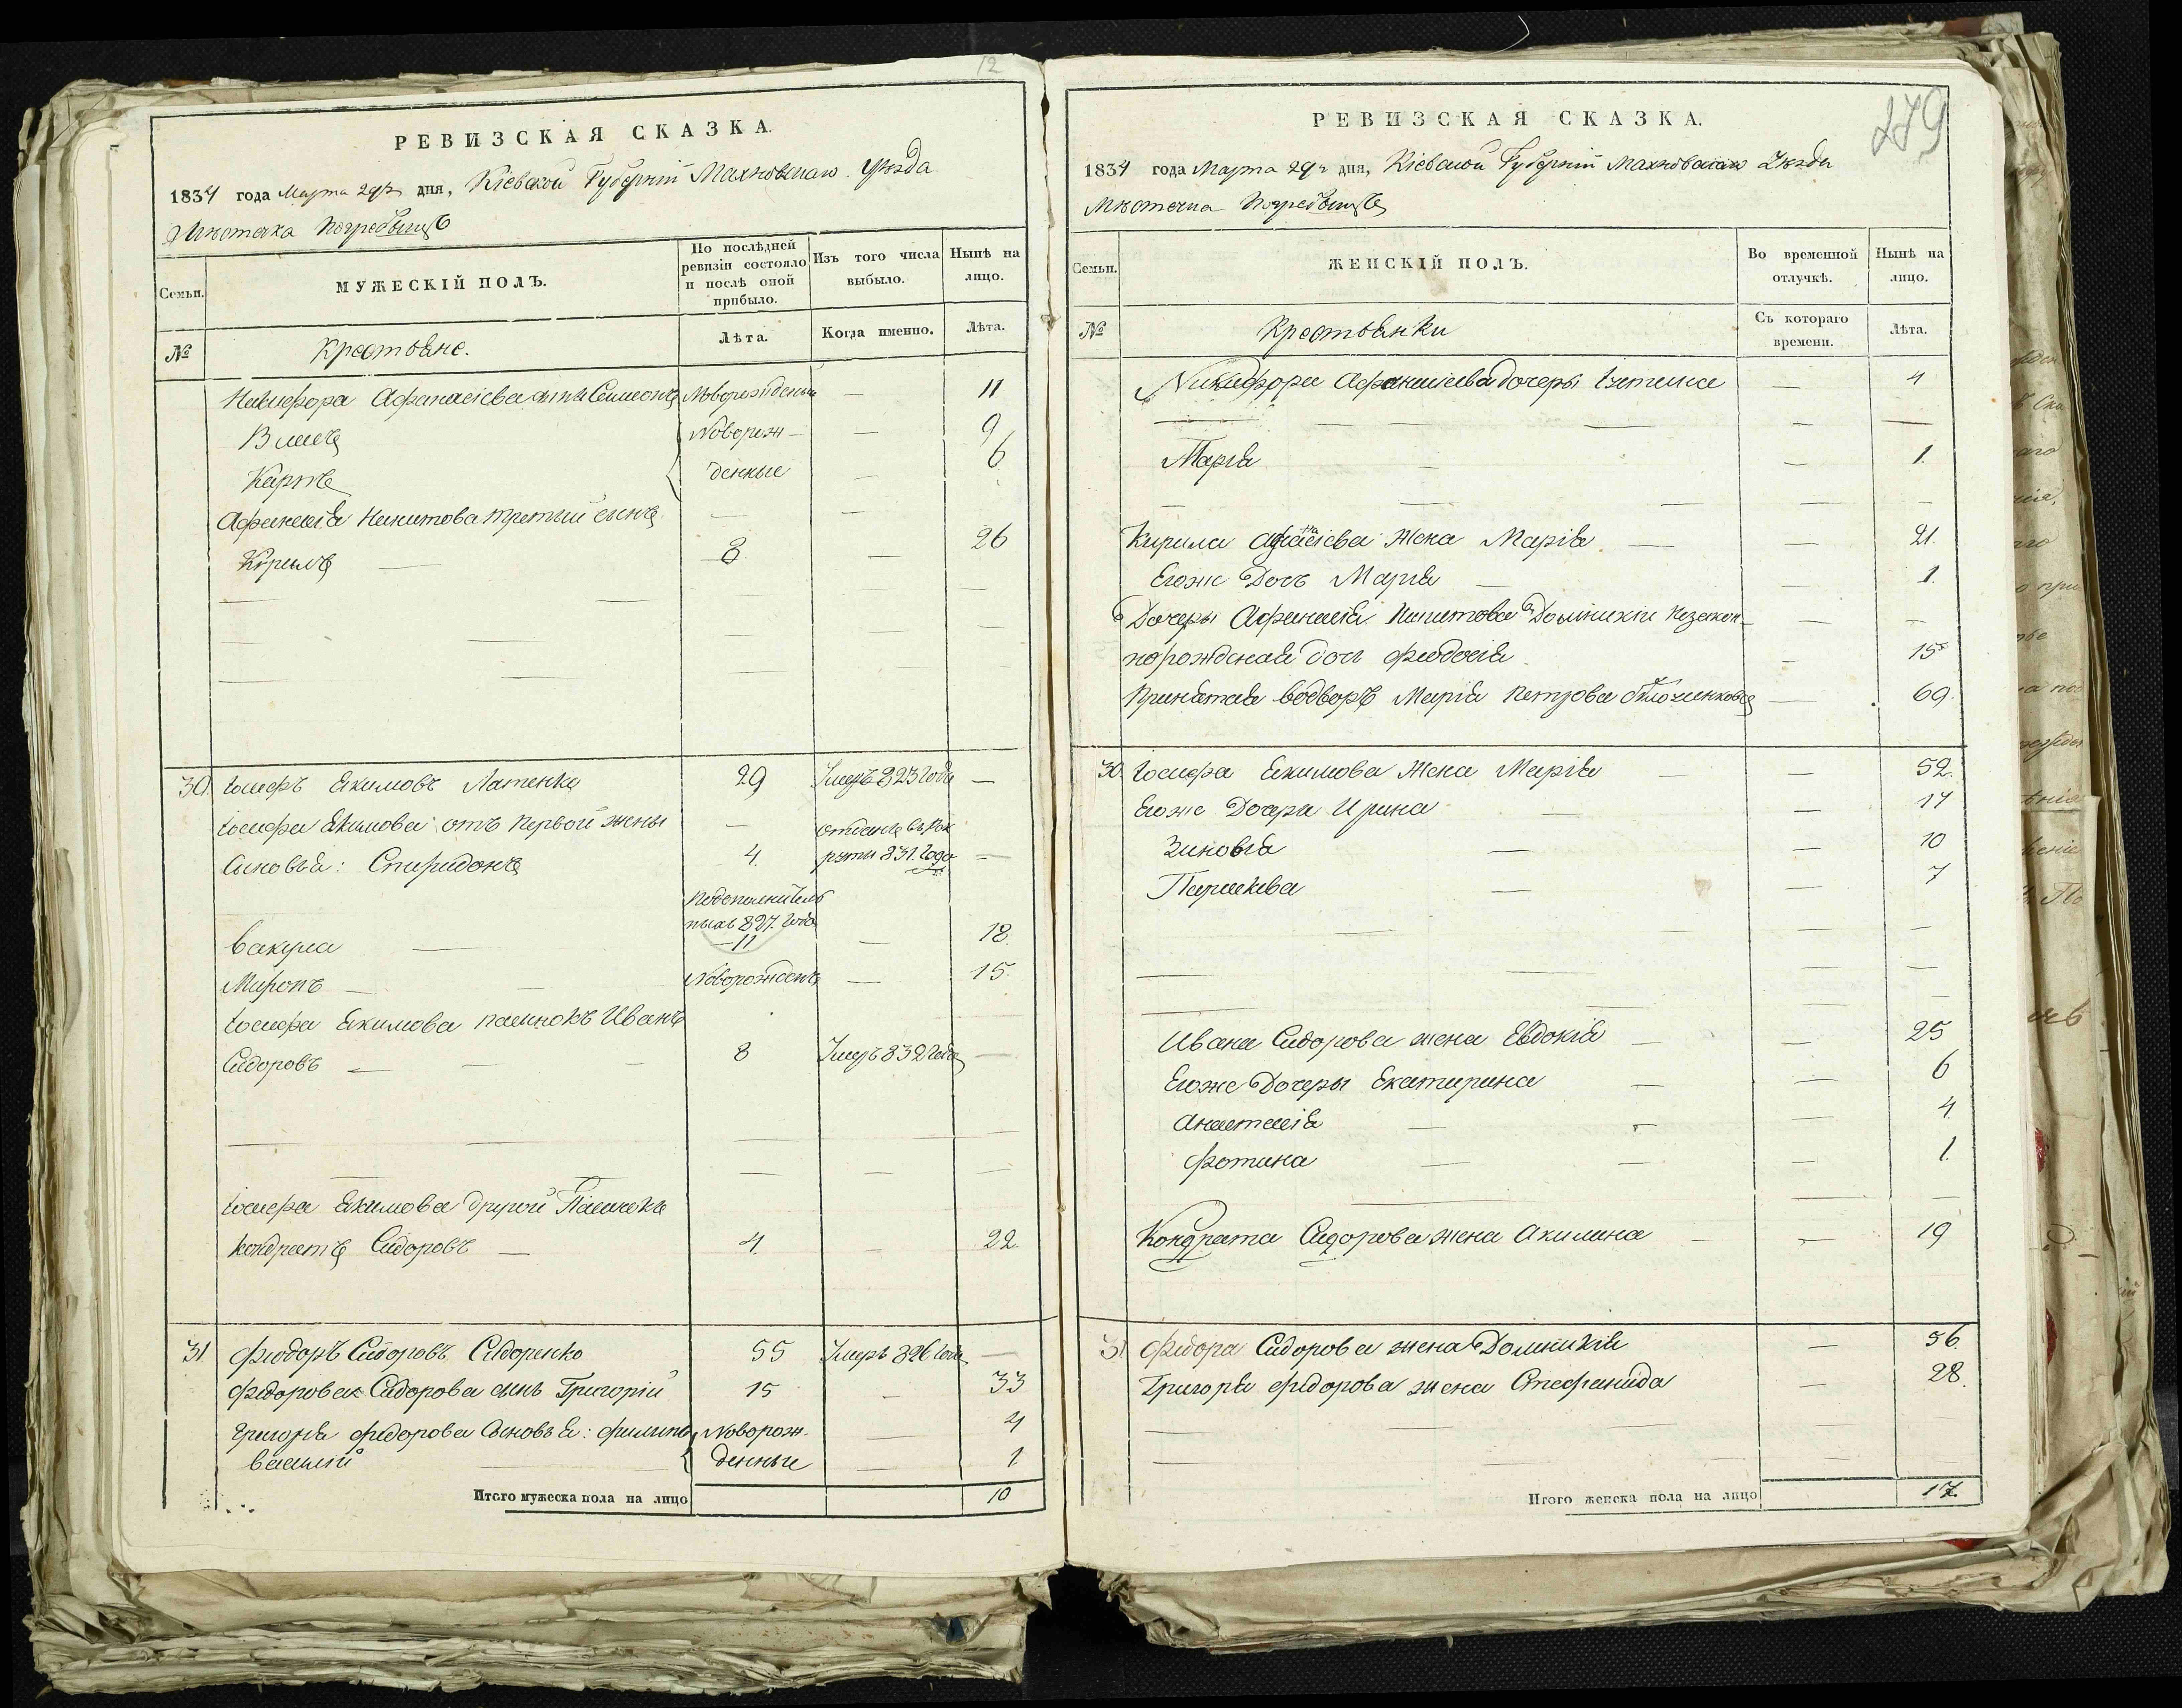 12
РЕВИЗСКАЯ СКАЗКА.
1834 года Марта 29го дня, Кіевской Губерніи Махновскаго Уѣзда
Мѣстечка Погребыщъ
Семьи.
МУЖЕСКІЙ ПОЛЪ.
По послѣдней ревизіи состояло и послѣ оной прибыло.
Изъ того числа выбыло.
Нынѣ на лицо.
№
Крестьяне.
Лѣта.
Когда именно.
Лѣта.
Никифора Афанасіева сынъ Симеонъ Новорожденый — 11
Власъ Новорож- — 9
Карпъ денные — 6
Афанасія Никитова третий сынъ — —
Кирилъ — 8. — 26
30. Іосифъ Екимовъ Латенко 29 Умеръ 823 Года —
Іосифа Екимова отъ первой жены — отданъ въ рек
Сыновья: Спиридонъ 4. руты 831. Года —
Подополнитель
ныхъ 827. Года
Вакула — 11 — 18.
Миронъ — — Новорожденъ — 15.
Іосифа Екимова пасинокъ Иванъ
Сидоровъ — — — 8 Умеръ 832 Года —
Іосифа Екимова другой Пасинокъ
Кондратъ Сидоровъ — 4. — 22.
31 Фиодоръ Сидоровъ Сидоренко 55 Умеръ 826 Года —
Фидорова Сидорова сынъ Григорій 15 — 33
Григорія Фидорова Сыновья: Филипъ Новорож- — 4
Василій денные — 1
Итого мужеска пола на лицо 10
279
РЕВИЗСКАЯ СКАЗКА.
1834 года Марта 29го дня, Кіевской Губерніи Махновскаго Уѣзда
Мѣстечка Погребыщъ
Семьи.
ЖЕНСКІЙ ПОЛЪ.
Во временной отлучкѣ.
Нынѣ на лицо.
№
Крестьянки
Съ котораго времени.
Лѣта.
Никифора Афанасіева дочеры — 4
Марія — — 1.
Кирила Афанасіева Жена Марія — — 21.
Егоже Дочь Марія — — 1.
Дочеры Афанасія Никитова Доминикіи Незакон- — —
норожденая дочь Фиодосія — 15
Принятая водворъ Марія Петрова — 69.
30. Іосифа Екимова Жена Марія — — 52.
Егоже Дочери Ирина — — 14
Зиновія — — 10
Параскива — — 7
Ивана Сидорова жена Евдокія — — 25
Егоже Дочеры Екатирина — — 6
Анастасія — — — 4
Фотина — — — 1.
Кондрата Сидорова жена Акилина — — 19
31 Фидора Сидорова жена Доминикія — 56.
Григорія Фидорова жена Стефанида — 28.
Итого женска пола на лицо 17.